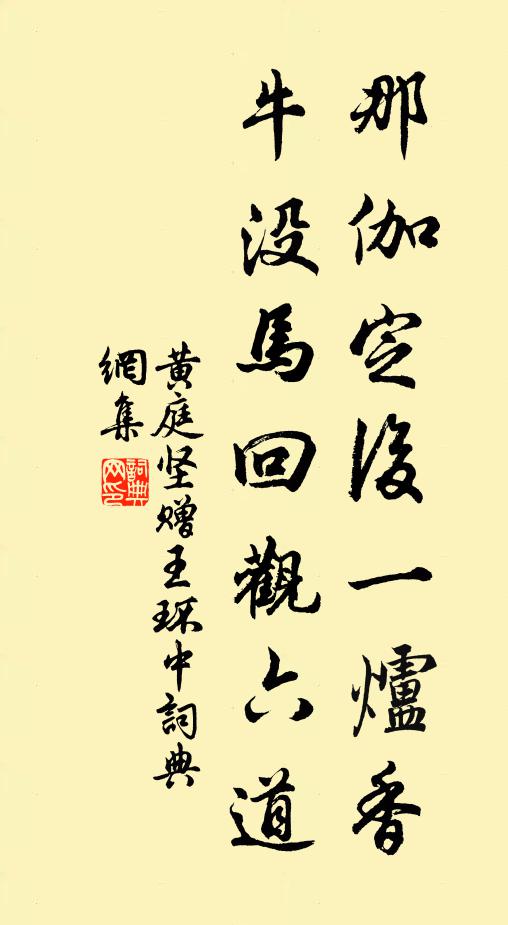 那伽定後一爐香
牛没馬回觀六道
黄庭坚赠王环中詞典
網集
詞典
网印